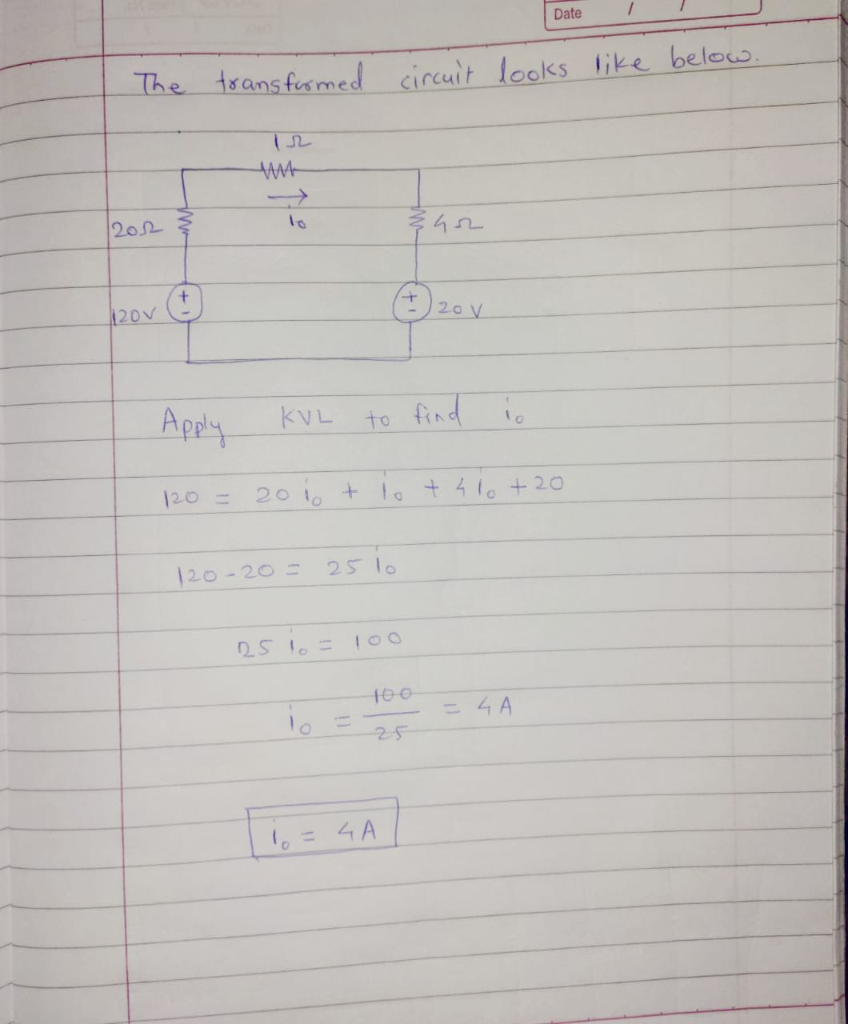 Date / /
The transformed circuit looks like below.
1Ω
i₀
20Ω
4Ω
120V
+
-
+
-
20V
Apply KVL to find i₀
120 = 20 i₀ + i₀ + 4 i₀ + 20
120 - 20 = 25 i₀
25 i₀ = 100
i₀ = 100/25 = 4A
i₀ = 4A